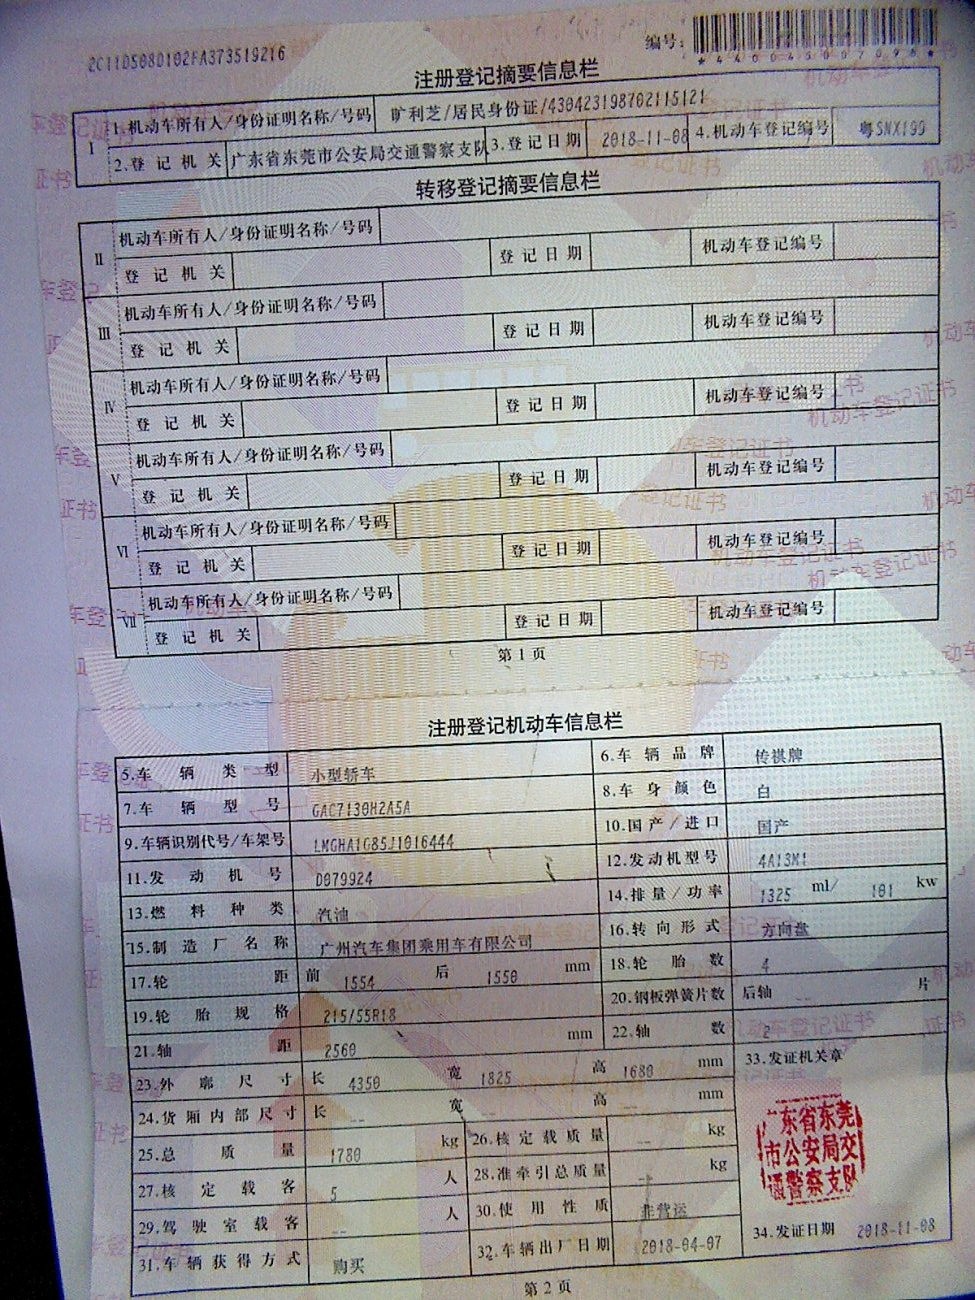 2C11D5080102FA373519216
编号:
*440045007096*
注册登记摘要信息栏
I 1.机动车所有人/身份证明名称/号码 旷利芝/居民身份证/430423198702115121
2.登记机关 广东省东莞市公安局交通警察支队 3.登记日期 2018-11-08 4.机动车登记编号 粤SNX199
转移登记摘要信息栏
II 机动车所有人/身份证明名称/号码
登记机关 登记日期 机动车登记编号
III 机动车所有人/身份证明名称/号码
登记机关 登记日期 机动车登记编号
IV 机动车所有人/身份证明名称/号码
登记机关 登记日期 机动车登记编号
V 机动车所有人/身份证明名称/号码
登记机关 登记日期 机动车登记编号
VI 机动车所有人/身份证明名称/号码
登记机关 登记日期 机动车登记编号
VII 机动车所有人/身份证明名称/号码
登记机关 登记日期 机动车登记编号
第1页
注册登记机动车信息栏
5.车辆类型 小型轿车 6.车辆品牌 传祺牌
7.车辆型号 GAC7130H2A5A 8.车身颜色 白
9.车辆识别代号/车架号 LMGHA1G85J1016444 10.国产/进口 国产
11.发动机号 D079924 12.发动机型号 4A13M1
13.燃料种类 汽油 14.排量/功率 1325 ml/ 101 kw
15.制造厂名称 广州汽车集团乘用车有限公司 16.转向形式 方向盘
17.轮距 前 1554 后 1550 mm 18.轮胎数 4
19.轮胎规格 215/55R18 20.钢板弹簧片数 后轴 -- 片
21.轴距 2560 mm 22.轴数 2
23.外廓尺寸 长 4350 宽 1825 高 1680 mm 33.发证机关章
24.货厢内部尺寸 长 -- 宽 -- 高 -- mm
25.总质量 1780 kg 26.核定载质量 -- kg
27.核定载客 5 人 28.准牵引总质量 -- kg
29.驾驶室载客 -- 人 30.使用性质 非营运
31.车辆获得方式 购买 32.车辆出厂日期 2018-04-07 34.发证日期 2018-11-08
广东省东莞
市公安局交
通警察支队
第2页